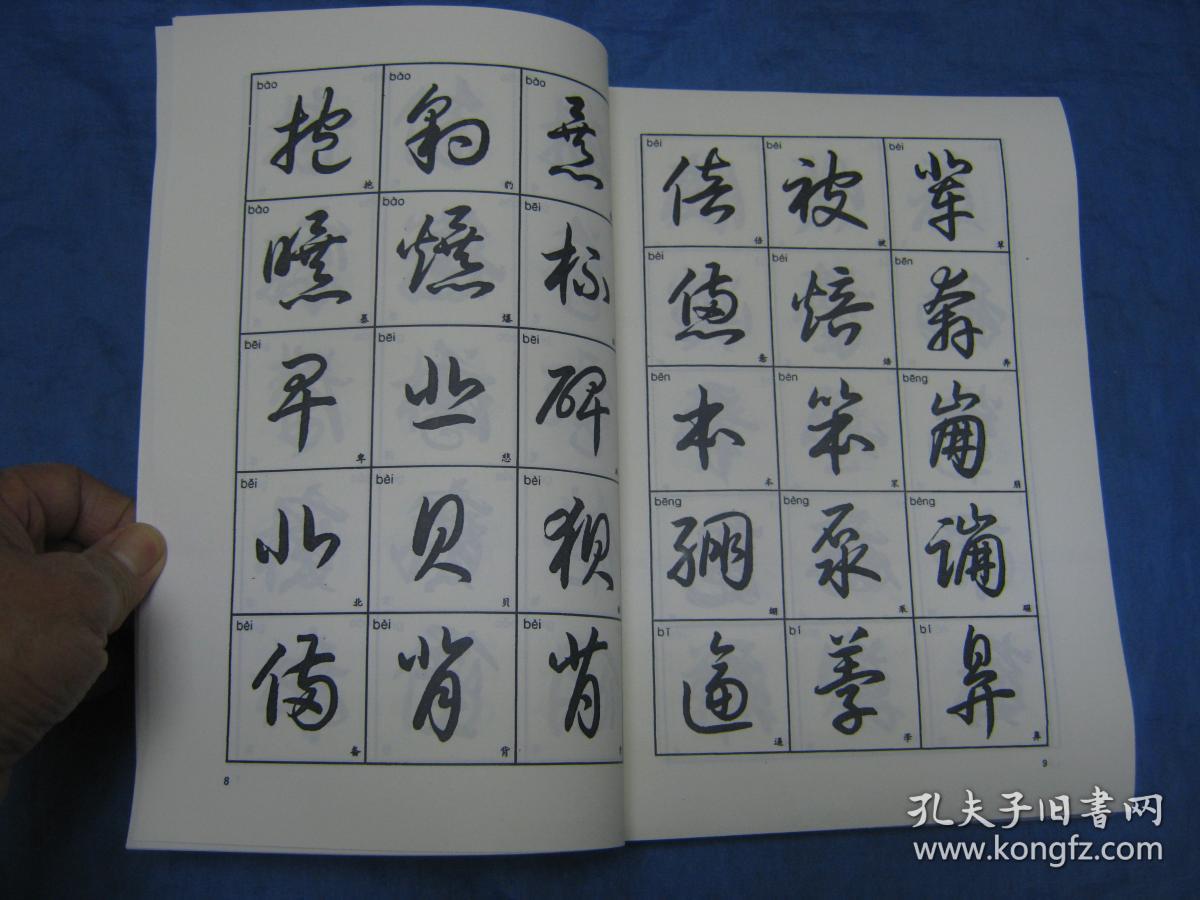 bào bào bào
抱 豹 暴
抱 豹
bào bào bēi
曝 爆 杯
爆
bēi bēi bēi
卑 悲 碑
卑 悲
běi bèi bèi
北 贝 狈
北 贝
bèi bèi bèi
備 背 背
备 背
8
bèi bèi bèi
倍 被 辈
倍 被
bèi bèi bēn
憊 焙 奔
惫 焙 奔
běn bèn bēng
本 笨 崩
本 笨 崩
bēng bèng bèng
繃 泵
绷 泵
bī bí bí
逼 荸 鼻
逼 荸 鼻
9
孔夫子旧书网
www.kongfz.com